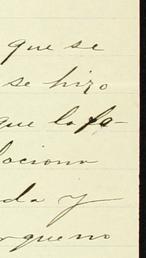 que se
se hizo
que la fa-
laciona
da y
rque no